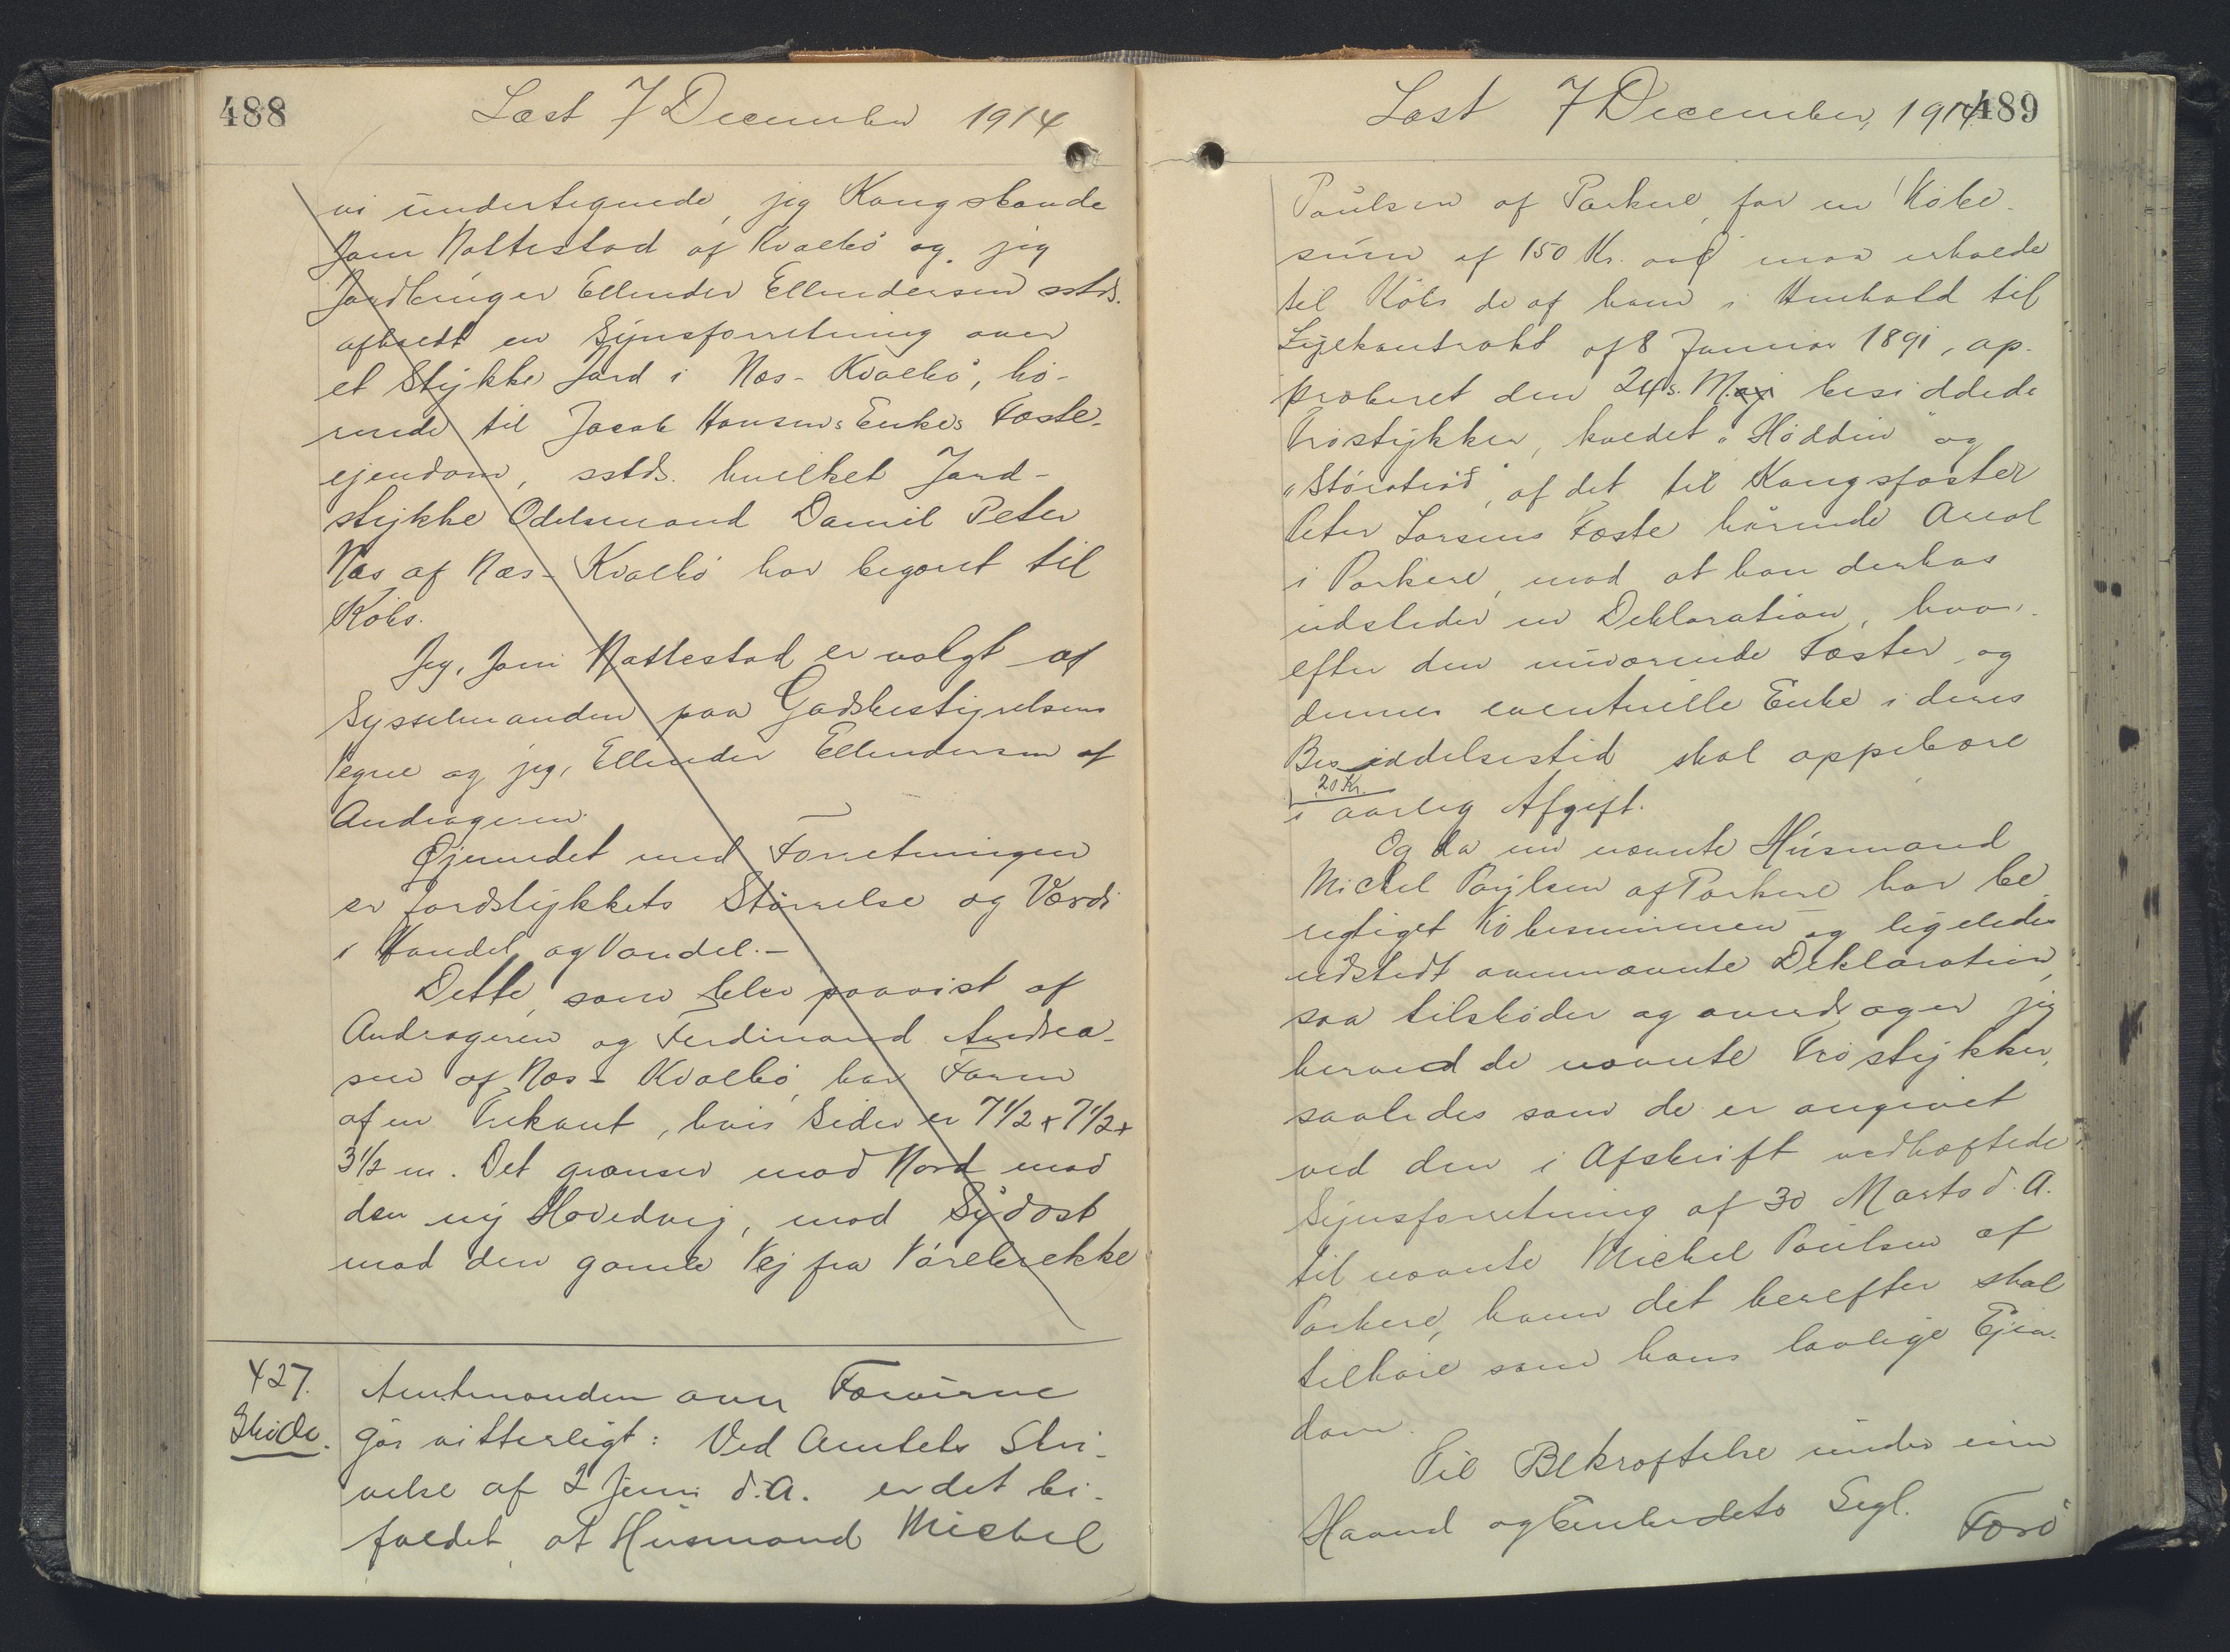 488
Læst 7 December 1914
vi undertegnede, jeg Kongsbonde
Joen Nattestad af Kvalbø og jeg
Jordbruger Ellender Ellendersen sstds.
afholdt en Synsforretning over
et Stykke Jord i Næs-Kvalbø, hø-
rende til Jacob Hansens Enkes Fæste-
ejendom, sstds. hvilket Jord-
stykke Odelsmand Daniel Peter
Næs af Næs-Kvalbø har begæret til
Købs.
Jeg, Joen Nattestad er valgt af
Sysselmanden paa Jordbestyrelsens
Vegne og jeg, Ellender Ellendersen af
Andrageren.
Øjemedet med Forretningen
er Jordstykkets Størrelse og Værdi
i Handel og Vandel.-
Dette, som blev paavist af
Andrageren og Ferdinand Andrea-
sen af Næs-Kvalbø, har Form
af en Trekant, hvis Sider er 7 1/2 + 7 1/2 +
3 1/2 m. Det grænser mod Nord mod
den ny Hovedvej, mod Sydost
mod den gamle Vej fra Vørebrekke
427.
Skøde.
Amtmanden over Færøerne
gør vitterligt: Ved Amtets Skri-
velse af 2 Juni d.A. er det bi-
faldet, at Husmand Michel
Læst 7 December, 1914
489
Poulsen af Porkere, for en Købe-
sum af 150 Kr. maa erholde
til Købs de af ham i Henhold til
Lejekontrakt af 8 Januar 1891, ap-
proberet den 24 s. M. besiddede
Trøstykker, kaldet "Høddin" og
"Støratrøð", af det til Kongsfæster
Peter Larsens Fæste hørende Areal
i Porkere, mod at han derhos
udsteder en Deklaration, hvor-
efter den nuværende Fæster og
dennes eventuelle Enke i deres
Besiddelsestid skal oppebære
20 Kr.
i aarlig Afgift.
Og da nu nævnte Husmand
Michel Poulsen af Porkere har be-
rigtiget Købesummen og ligeledes
udstedt ovennævnte Deklaration,
saa tilskøder og overdrager jeg
herved de nævnte Trøstykker,
saaledes som de er angivet
ved den i Afskrift vedhæftede
Synsforretning af 30 Marts d.A.
til nævnte Michel Poulsen af
Porkere, ham det herefter skal
tilhøre som hans lovlige Ejen-
dom.
Til Bekræftelse under min
Haand og Embedets Segl. Færø